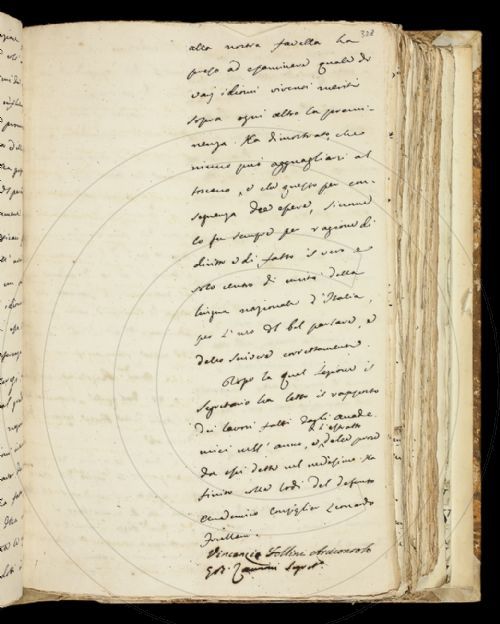 328
alla nostra favella ha
preso ad esaminare quale de
varj idiomi viventi meriti
sopra ogni altro la premi-
nenza. Ha dimostrato, che
niuno può agguagliarsi al
toscano, e che questo per con-
seguenza dee essere, siccome
lo fu sempre per ragione di
diritto e di fatto il vero e
solo centro di unità della
lingua nazionale d'Italia,
per l'uso del bel parlare, e
dello scrivere correttamente.
Dopo la qual Lezione il
Segretario ha letto il rapporto
dei lavori fatti dagli Accade
mici nell'anno, e l'estratto delle prose
da essi dette nel medesimo. Ha
finito colle lodi del defunto
Accademico Consiglier Leonardo
Frullani.
Vincenzio Follini Arciconsolo
G. B. Zannoni Segret.